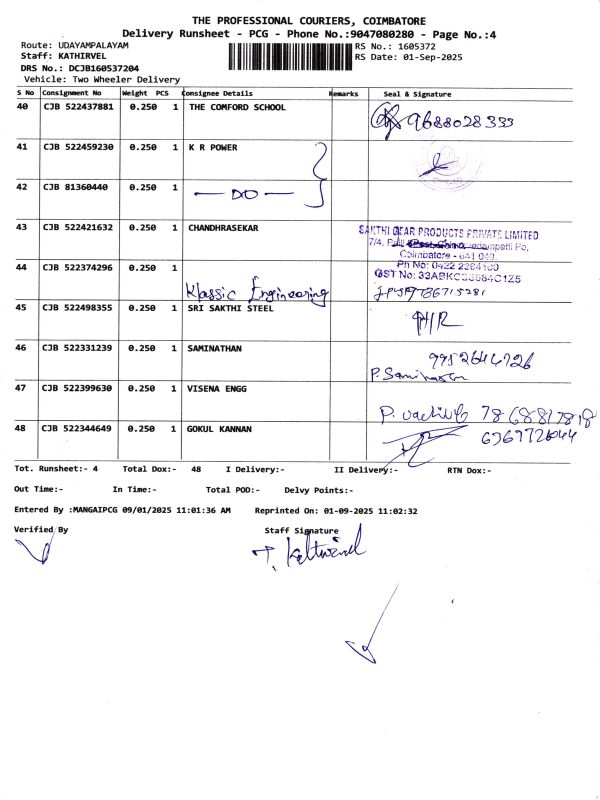 THE PROFESSIONAL COURIERS, COIMBATORE
Delivery Runsheet - PCG - Phone No.:9047080280 - Page No.:4
Route: UDAYAMPALAYAM
Staff: KATHIRVEL
RS No.: 1605372
RS Date: 01-Sep-2025
DRS No.: DCJB160537204
Vehicle: Two Wheeler Delivery
S No Consignment No Weight PCS Consignee Details Remarks Seal & Signature
40 CJB 522437881 0.250 1 THE COMFORD SCHOOL 9688028333
41 CJB 522459230 0.250 1 K R POWER
42 CJB 81360440 0.250 1 — DO —
43 CJB 522421632 0.250 1 CHANDHRASEKAR
SAKTHI GEAR PRODUCTS PRIVATE LIMITED
Coimbatore - 641 049.
44 CJB 522374296 0.250 1 Klassic Engineering
Ph No: 0422 2264100
45 CJB 522498355 0.250 1 SRI SAKTHI STEEL
46 CJB 522331239 0.250 1 SAMINATHAN 9952644726
P. Saminathan
47 CJB 522399630 0.250 1 VISENA ENGG
48 CJB 522344649 0.250 1 GOKUL KANNAN
Tot. Runsheet:- 4 Total Dox:- 48 I Delivery:- II Delivery:- RTN Dox:-
Out Time:- In Time:- Total POD:- Delvy Points:-
Entered By :MANGAIPCG 09/01/2025 11:01:36 AM Reprinted On: 01-09-2025 11:02:32
Verified By Staff Signature